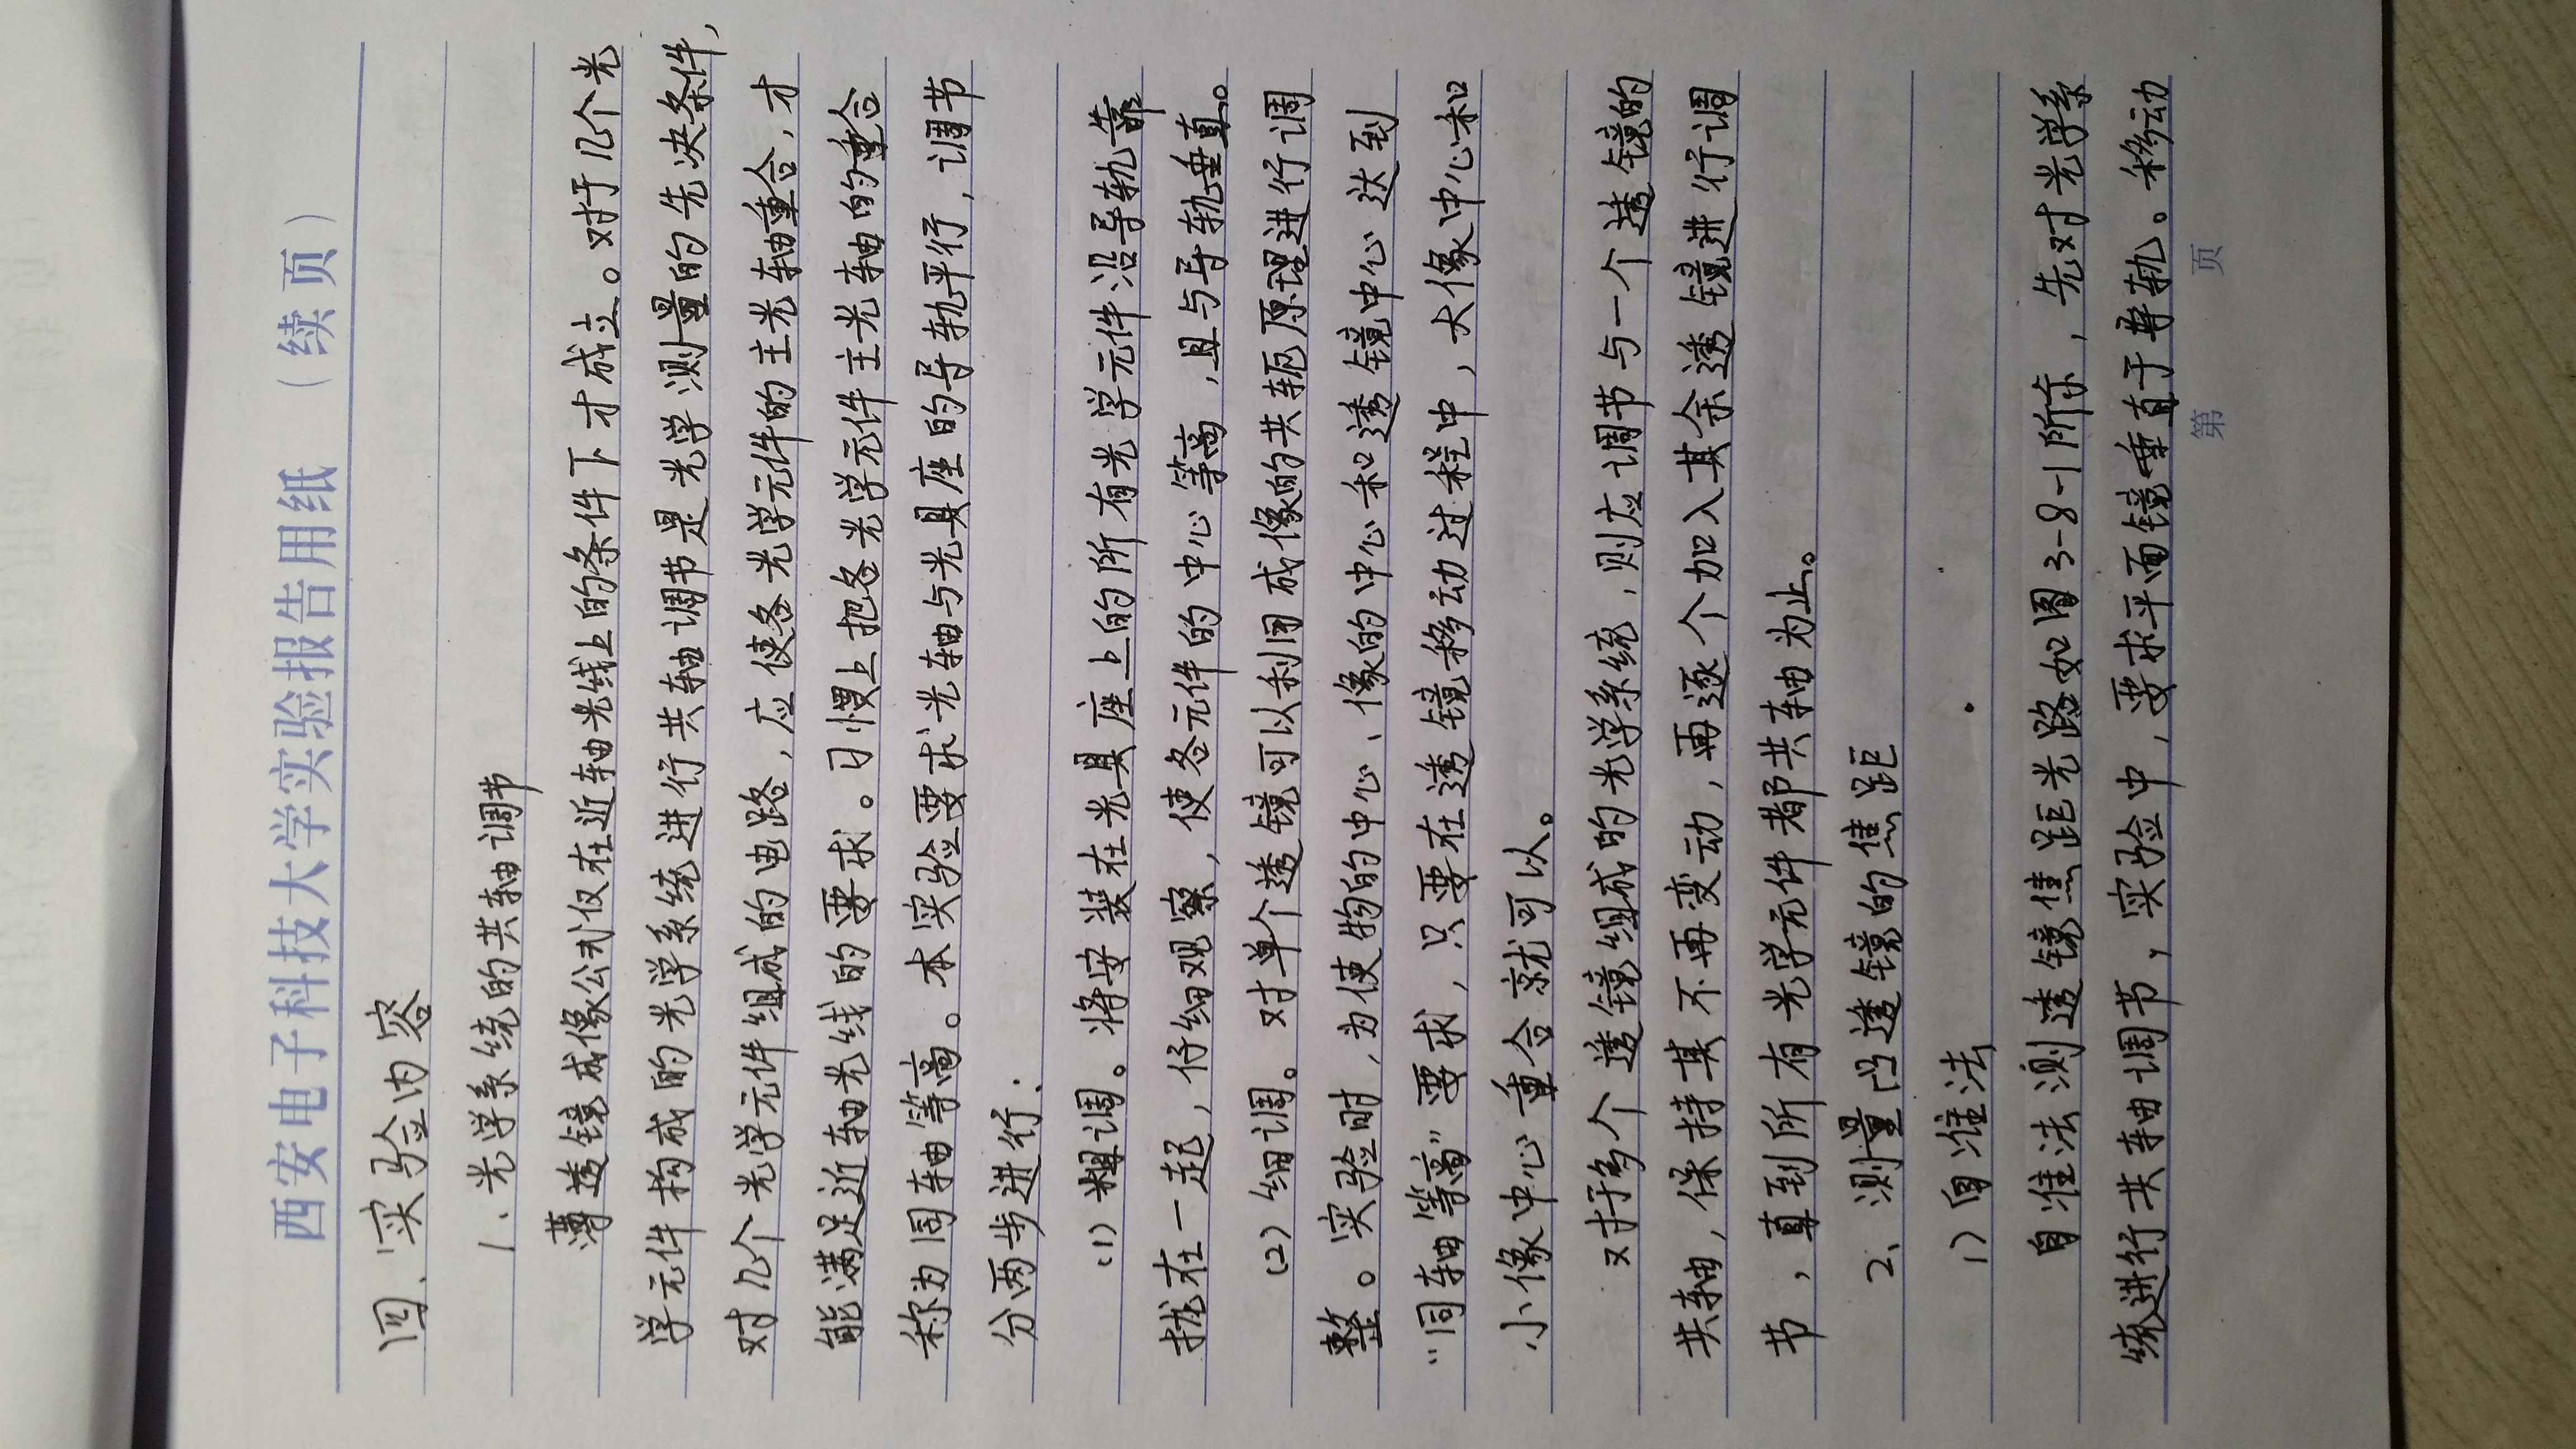 西安电子科技大学实验报告用纸（续页）
四、实验内容
1、光学系统的共轴调节
薄透镜成像公式仅在近轴光线上的条件下才成立。对于几个光
学元件构成的光学系统进行共轴调节是光学测量的先决条件，
对几个光学元件组成的电路，应使各光学元件的主光轴重合，才
能满足近轴光线的要求。习惯上把各光学元件主光轴的重合
称为同轴等高。本实验要求光轴与光具座的导轨平行，调节
分两步进行：
(1) 粗调。将安装在光具座上的所有光学元件沿导轨靠
拢在一起，仔细观察，使各元件的中心等高，且与导轨垂直。
(2) 细调。对单个透镜可以利用成像的共轭原理进行调
整。实验时，为使物的中心、像的中心和透镜中心达到
“同轴等高”要求，只要在透镜移动过程中，大像中心和
小像中心重合就可以。
对于多个透镜组成的光学系统，则应调节与一个透镜的
共轴，保持其不再变动，再逐个加入其余透镜进行调
节，直到所有光学元件都共轴为止。
2、测量凸透镜的焦距
1) 自准法
自准法测透镜焦距光路如图3-8-1所示，先对光学系
统进行共轴调节，实验中，要求平面镜垂直于导轨。移动
第 页